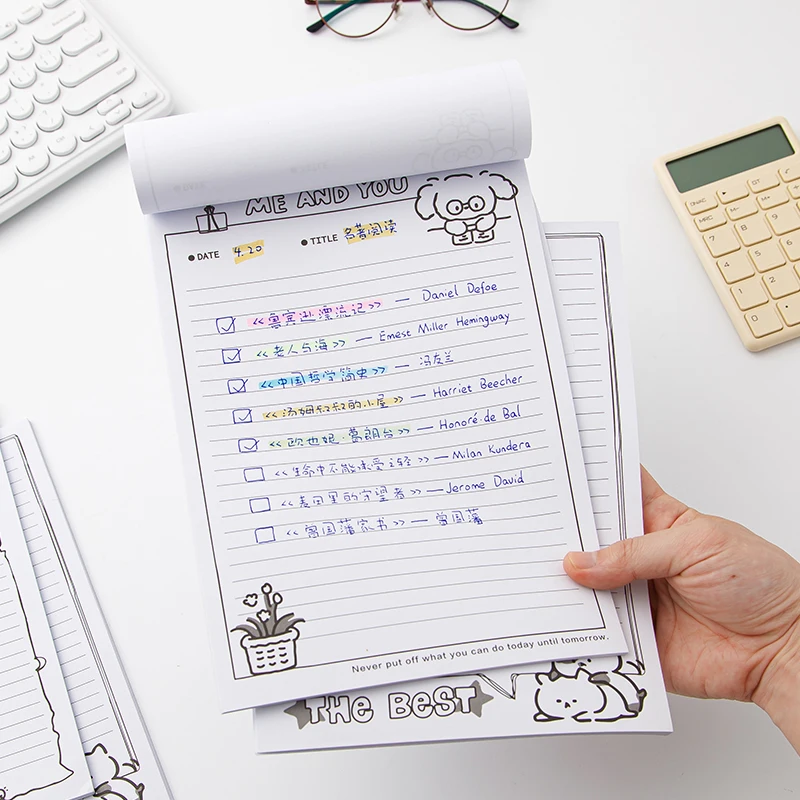 ME AND YOU
DATE 4.20 TITLE 名著阅读
《鲁宾逊漂流记》 — Daniel Defoe
《老人与海》 — Ernest Miller Hemingway
《中国哲学简史》 — 冯友兰
《汤姆叔叔的小屋》 — Harriet Beecher
《欧也妮·葛朗台》 — Honoré de Bal
《生命中不能承受之轻》 — Milan Kundera
《麦田里的守望者》 — Jerome David
《曾国藩家书》 — 曾国藩
Never put off what you can do today until tomorrow.
THE BEST
ONAC
GT
MRC
M-
M+
7 8 9
4 5 6
1 2 3
0